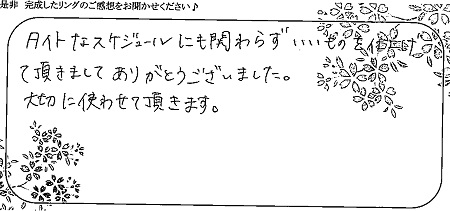 是非 完成したリングのご感想をお聞かせください♪
タイトなスケジュールにも関わらずいいものを
て頂きましてありがとうございました。
大切に使わせて頂きます。